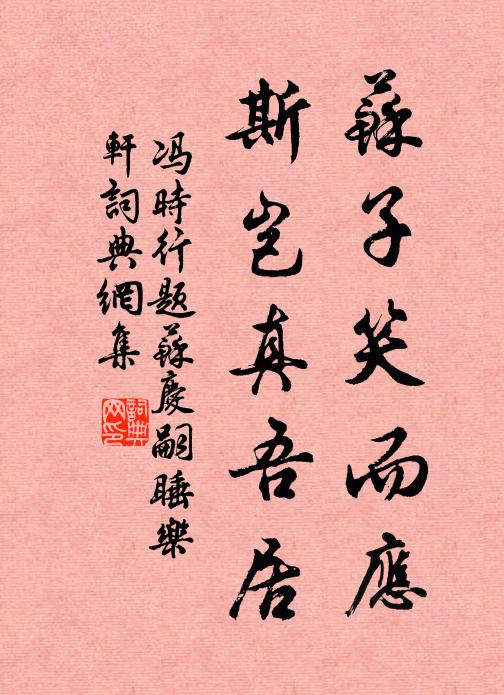 蘇子笑而應
斯豈真吾居
馮時行題蘇慶嗣睡樂
軒詞典網集
詞典网印